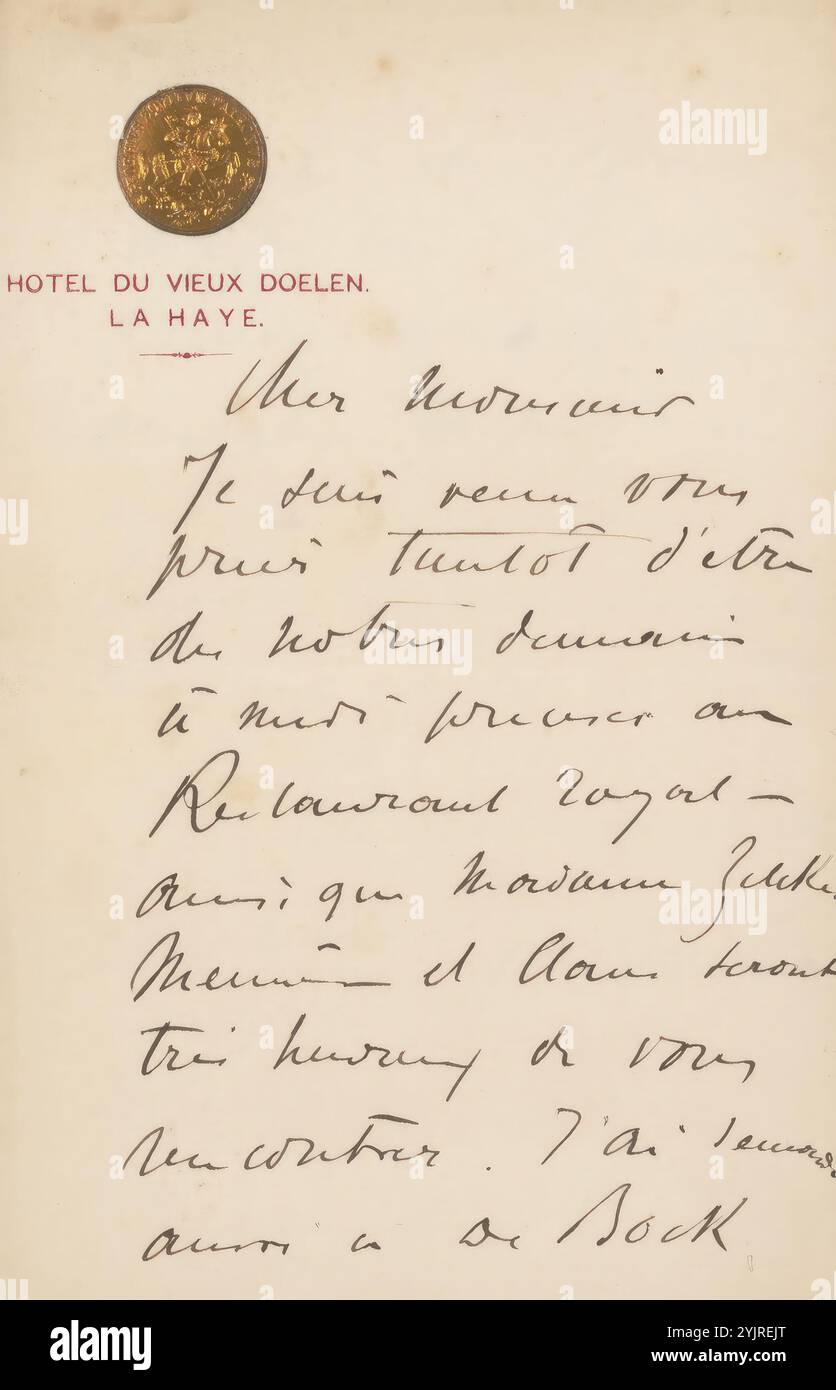 HOTEL DU VIEUX DOELEN.
LA HAYE.
Cher Monsieur
Je suis venu vous
prier tantôt d'etre
des notres demain
à midi precises au
Restaurant royal —
ainsi que Madame Zilcken
Meunier et Claus seront
très heureux de vous
rencontrer. J'ai demandé
aussi a De Bock
alamy
Image ID: 2YJREJT
www.alamy.com